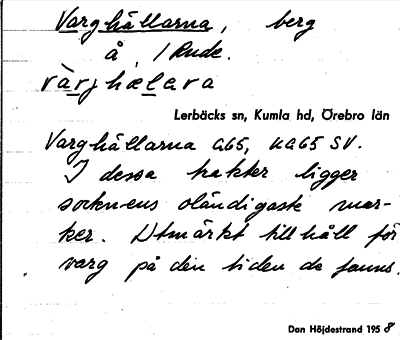 Varghällarna, berg
å, 1 Rude.
vàrjhælara
Lerbäcks sn, Kumla hd, Örebro län
Varghällarna a65, ka65 SV.
I dessa trakter ligger
socknens oländigaste mar-
ker. Utmärkt tillhåll för
varg på den tiden de fanns.
Dan Höjdestrand 1958